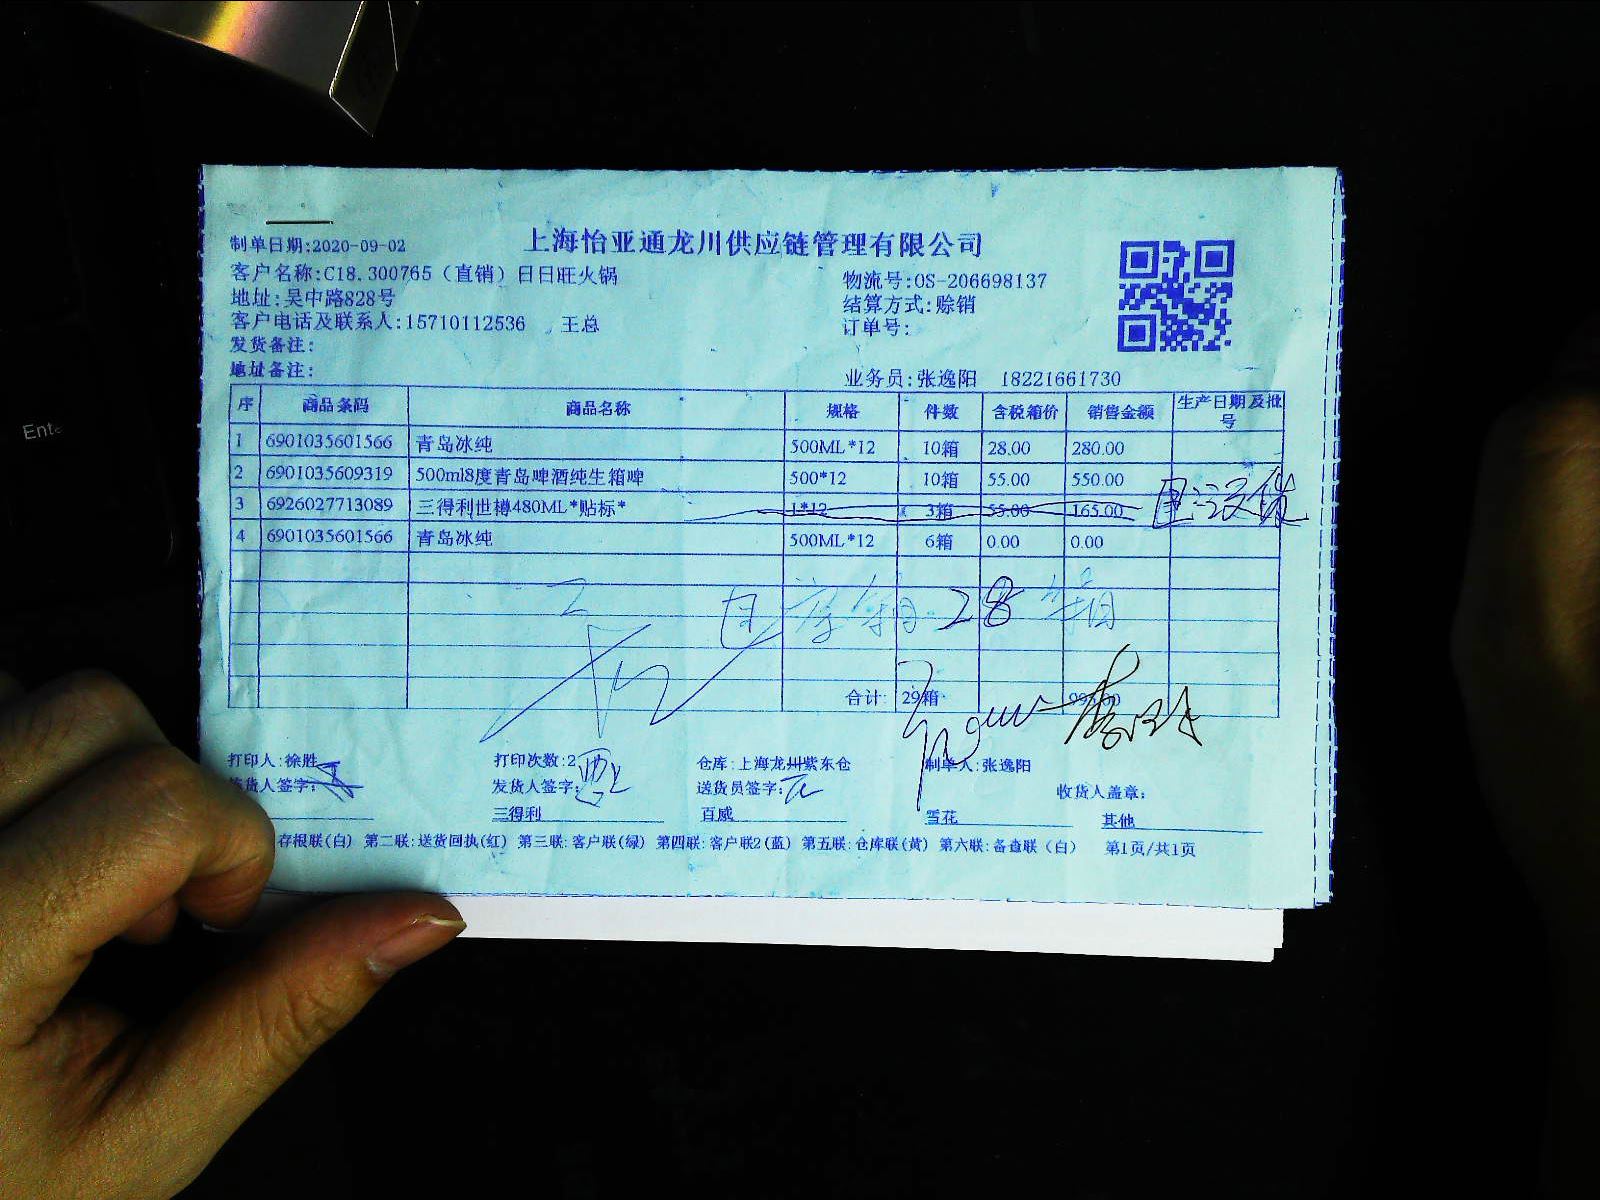 上海怡亚通龙川供应链管理有限公司
制单日期:2020-09-02
客户名称:C18.300765（直销）日日旺火锅 物流号:OS-206698137
地址:吴中路828号 结算方式:赊销
客户电话及联系人:15710112536 王总 订单号:
发货备注:
地址备注: 业务员:张逸阳 18221661730
序 商品条码 商品名称 规格 件数 含税箱价 销售金额 生产日期及批号
1 6901035601566 青岛冰纯 500ML*12 10箱 28.00 280.00
2 6901035609319 500ml8度青岛啤酒纯生箱啤 500*12 10箱 55.00 550.00
3 6926027713089 三得利世樽480ML*贴标* 1*12 3箱 55.00 165.00
4 6901035601566 青岛冰纯 500ML*12 6箱 0.00 0.00
28箱
合计 29箱
打印人:徐胜 打印次数:2 仓库:上海龙川紫东仓 制单人:张逸阳
货人签字: 发货人签字: 送货员签字: 收货人盖章:
三得利 百威 雪花 其他
存根联(白) 第二联:送货回执(红) 第三联:客户联(绿) 第四联:客户联2(蓝) 第五联:仓库联(黄) 第六联:备查联（白） 第1页/共1页
Ente